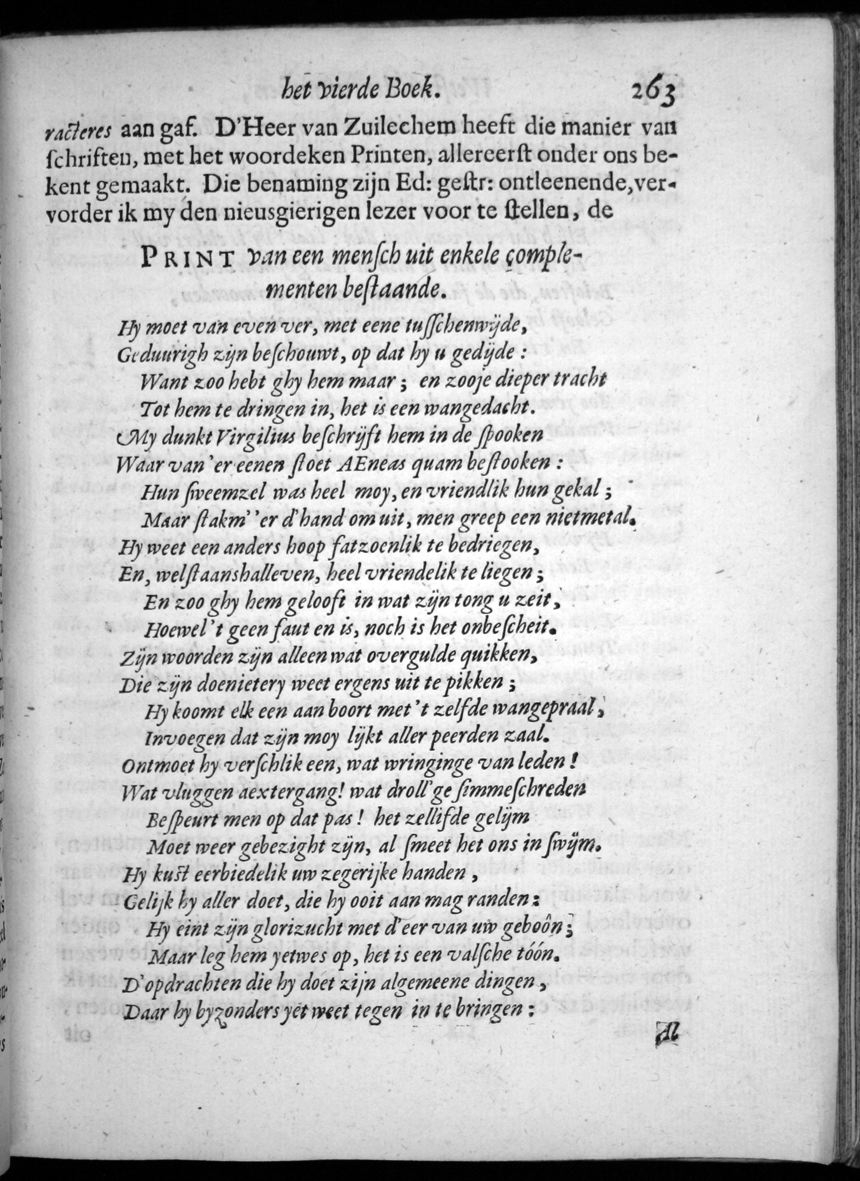 het vierde Boek. 263
racteres aan gaf. D'Heer van Zuilechem heeft die manier van
ſchriften, met het woordeken Printen, allereerſt onder ons be-
kent gemaakt. Die benaming zijn Ed: geſtr: ontleenende, ver-
vorder ik my den nieusgierigen lezer voor te ſtellen, de
PRINT van een menſch uit enkele comple-
menten beſtaande.
Hy moet van even ver, met eene tuſſchenwijde,
Geduurigh zijn beſchouwt, op dat hy u gedijde:
Want zoo hebt ghy hem maar; en zooje dieper tracht
Tot hem te dringen in, het is een wangedacht.
My dunkt Virgilius beſchrijft hem in de ſpooken
Waar van 'er eenen ſtoet AEneas quam beſtooken:
Hun ſweemzel was heel moy, en vriendlik hun gekal;
Maar ſtakm' 'er d'hand om uit, men greep een nietmetal.
Hy weet een anders hoop fatzoenlik te bedriegen,
En, welſtaanshalleven, heel vriendelik te liegen;
En zoo ghy hem gelooft in wat zijn tong u zeit,
Hoewel 't geen faut en is, noch is het onbeſcheit.
Zijn woorden zijn alleen wat overgulde quikken,
Die zijn doenietery weet ergens uit te pikken;
Hy koomt elk een aan boort met 't zelfde wangepraal,
Invoegen dat zijn moy lijkt aller peerden zaal.
Ontmoet hy verſchlik een, wat wringinge van leden!
Wat vluggen aextergang! wat droll'ge ſimmeſchreden
Beſpeurt men op dat pas! het zellifde gelijm
Moet weer gebezight zijn, al ſmeet het ons in ſwijm.
Hy kust eerbiedelik uw zegerijke handen,
Gelijk hy aller doet, die hy ooit aan mag randen:
Hy eint zijn glorizucht met d'eer van uw geboôn;
Maar leg hem yetwes op, het is een valſche tóón.
D'opdrachten die hy doet zijn algemeene dingen,
Daar hy byzonders yet weet tegen in te bringen:
Al